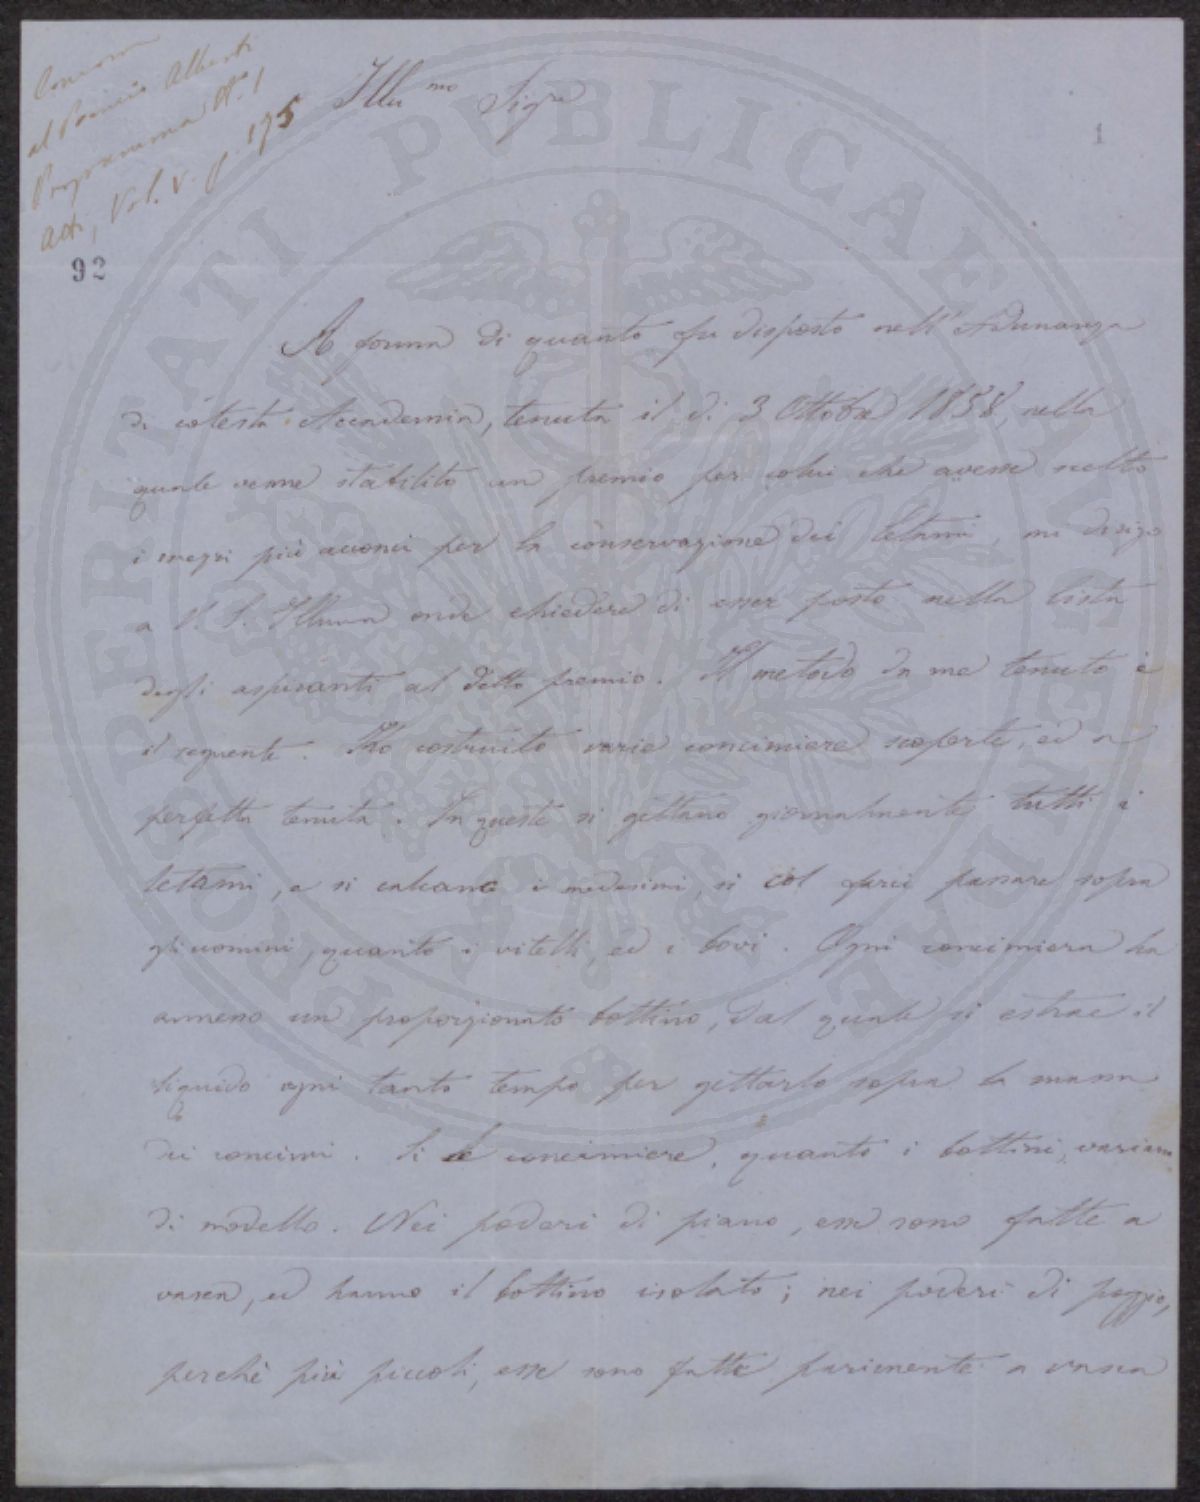 Concorso
al Premio Alberti
Programma N.° 1
Atti, Vol. V. p. 175
Illu mo Sigre
1
92
A forma di quanto fu disposto nell' Adunanza
di cotesta Accademia, tenuta il dì 3 Ottobre 1858, nella
quale venne stabilito un premio per colui che avesse scelto
i mezzi più acconci per la conservazione dei letami, mi dirigo
a V. S. Illma onde chiedere di esser posto nella lista
degli aspiranti al detto premio. Il metodo da me tenuto è
il seguente. Ho costruito varie concimiere scoperte, ed a
perfetta tenuta. In queste si gettano giornalmente tutti i
letami, e si calcano i medesimi, sì col farci passare sopra
gli uomini, quanto i vitelli, ed i bovi. Ogni concimiera ha
annesso un proporzionato bottino, dal quale si estrae il
liquido ogni tanto tempo per gettarlo sopra la massa
dei concimi. Sì le concimiere, quanto i bottini, variano
di modello. Nei poderi di piano, esse sono fatte a
vasca, ed hanno il bottino isolato; nei poderi di poggio,
perchè più piccoli, esse sono fatte parimente a vasca
PROSPERITATI PVBLICAE AVGENDAE